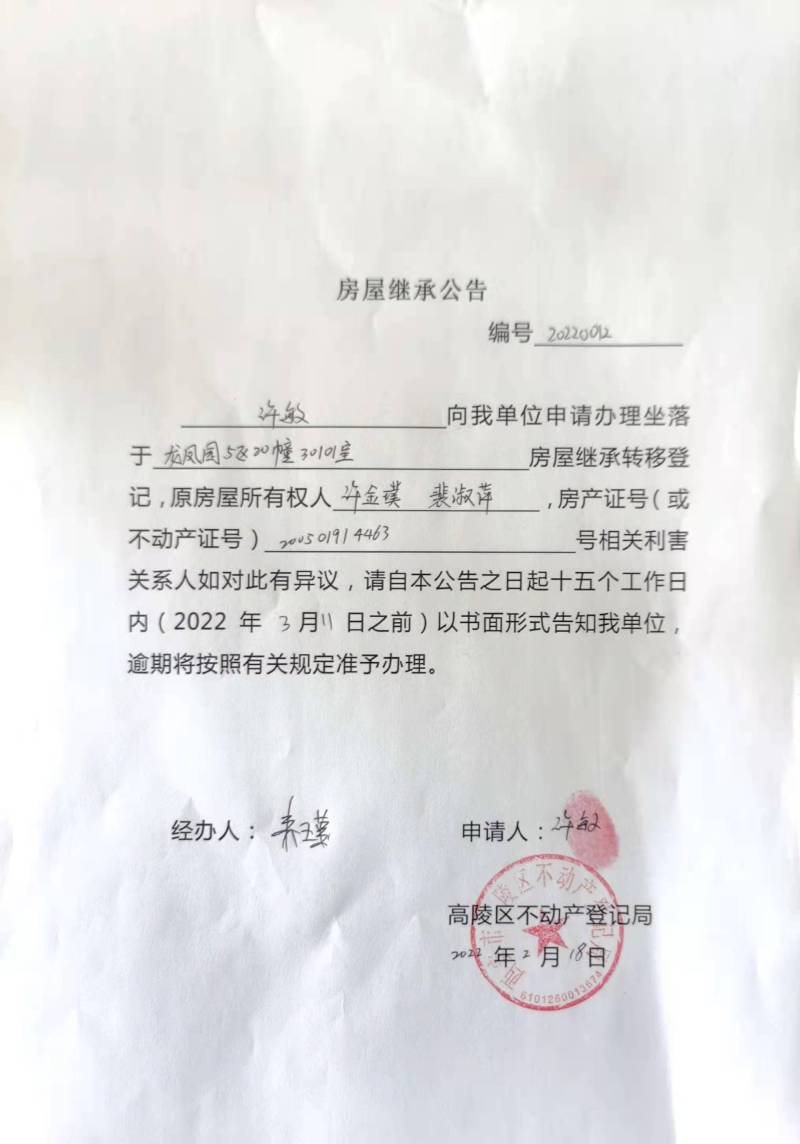 房屋继承公告
编号 20220012
许敏 向我单位申请办理坐落
于 龙凤园5区20幢30101室 房屋继承转移登
记，原房屋所有权人 许金璞 裴淑萍 ，房产证号（或
不动产证号） 200501914463 号相关利害
关系人如对此有异议，请自本公告之日起十五个工作日
内（2022 年 3 月 11 日之前）以书面形式告知我单位，
逾期将按照有关规定准予办理。
经办人：
申请人：许敏
高陵区不动产登记局
2022 年 2 月 18 日
西安市高陵区不动产登记局
6101260013674